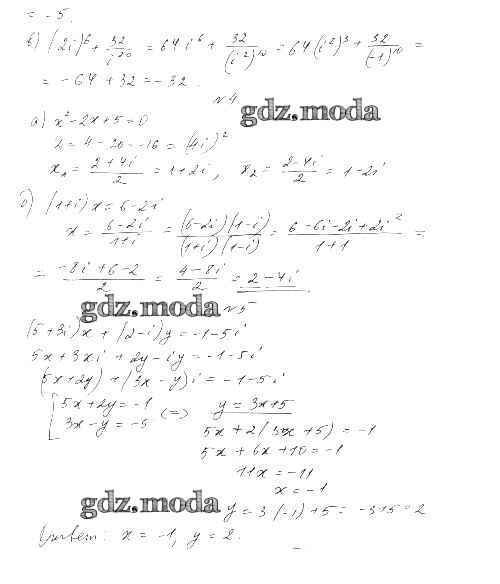 = -5.
в) (2i)⁶ + 32/i²⁰ = 64i⁶ + 32/(i²)¹⁰ = 64(i²)³ + 32/(-1)¹⁰ =
= -64 + 32 = -32.
№4
gdz.moda
а) x² - 2x + 5 = 0
D = 4 - 20 = -16 = (4i)²
x₁ = (2+4i)/2 = 1+2i, x₂ = (2-4i)/2 = 1-2i
б) (1+i)x = 6-2i
x = (6-2i)/(1+i) = (6-2i)(1-i)/(1+i)(1-i) = (6-6i-2i+2i²)/(1+1) =
= (-8i+6-2)/2 = (4-8i)/2 = 2-4i
gdz.moda №5
(5+3i)x + (2-i)y = -1-5i
5x + 3xi + 2y - iy = -1-5i
(5x+2y) + (3x-y)i = -1-5i
5x+2y = -1 (=) y = 3x+5
3x-y = -5
5x + 2(3x+5) = -1
5x + 6x + 10 = -1
11x = -11
x = -1
gdz.moda y = 3(-1)+5 = -3+5 = 2
Ответ: x = -1, y = 2.